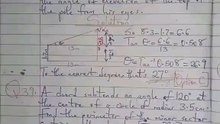 the angle of elevation of the top of
the pole from his eyes.
Solution
8.3-1.7=6.6
Tan θ = 6.6 = 0.508
13
13m
θ = Tan⁻¹ 0.508
To the nearest degree its 27°
A chord subtends an angle of 120° at
the centre of a circle of radius 3.5cm
Find the perimeter of the minor sector